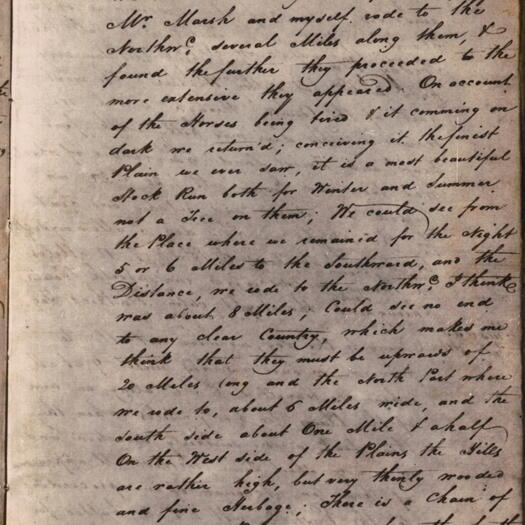 Mr. Marsh and myself rode to the
Northwd. several Miles along them, &
found the further they proceeded to the
more extensive they appeared. On account
of the Horses being tired & it comming on
dark we return'd; conceiving it the finest
Plain we ever saw, it is a most beautiful
Stock Run both for Winter and Summer
not a Tree on them; We could see from
the Place where we remained for the Night
5 or 6 Miles to the Southward, and the
Distance, we rode to the Northwd. I think
was about 8 Miles; Could see no end
to any clear Country, which makes me
think that they must be upwards of
20 Miles long and the North Part where
we rode to, about 6 Miles wide, and the
South side about One Mile & a half
On the West side of the Plains the Hills
are rather high, but very thinly wooded
and fine Herbage; There is a Chain of